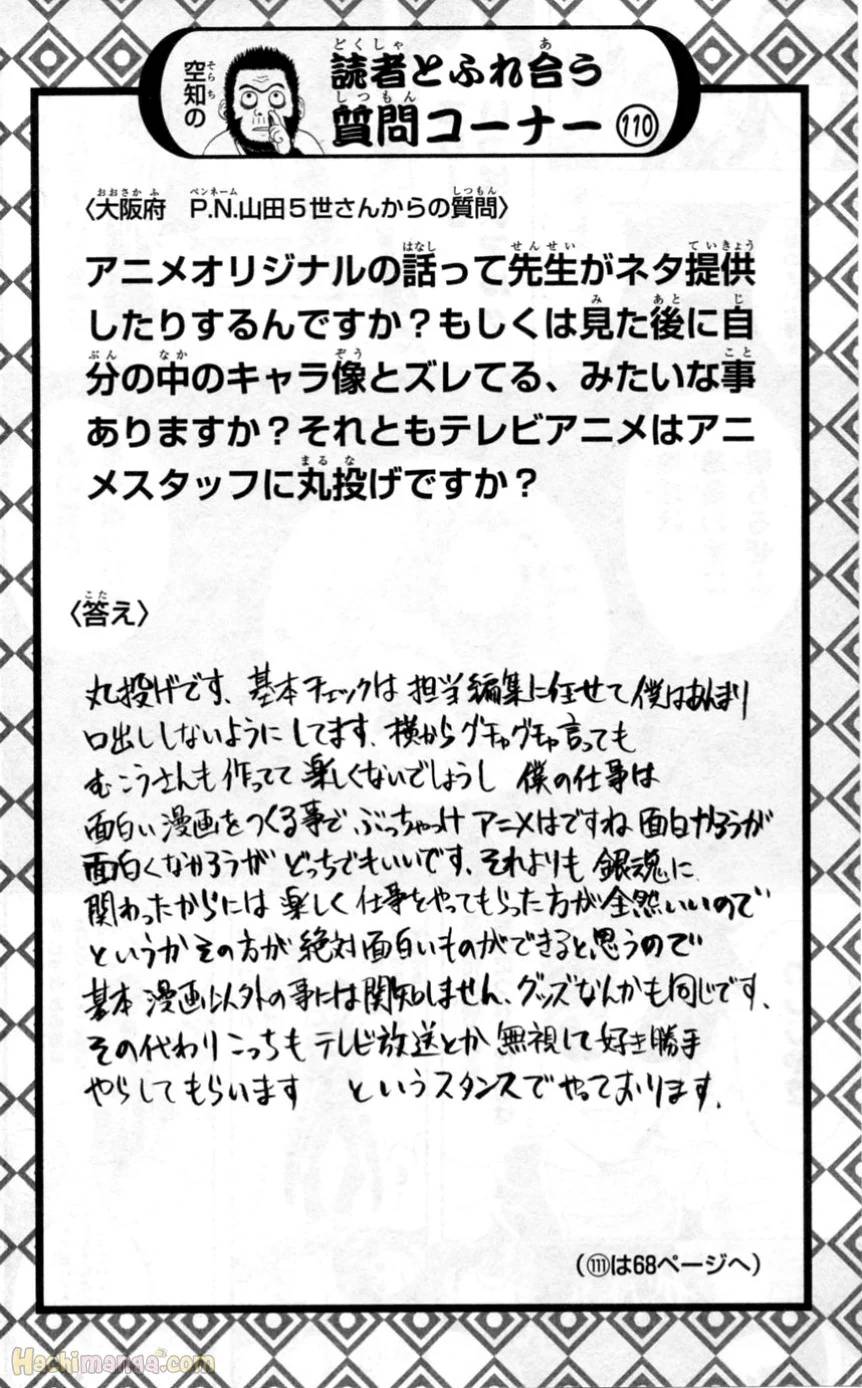 空知の
読者とふれ合う
質問コーナー 110
〈大阪府 P.N.山田5世さんからの質問〉
アニメオリジナルの話って先生がネタ提供
したりするんですか？もしくは見た後に自
分の中のキャラ像とズレてる、みたいな事
ありますか？それともテレビアニメはアニ
メスタッフに丸投げですか？
〈答え〉
丸投げです、基本チェックは担当編集に任せて僕はあんまり
口出ししないようにしてます、横からグチャグチャ言っても
むこうさんも作ってて楽しくないでしょうし 僕の仕事は
面白い漫画をつくる事で、ぶっちゃけアニメはですね面白かろうが
面白くなかろうがどっちでもいいです、それよりも銀魂に
関わったからには楽しく仕事をやってもらった方が全然いいので
というかその方が絶対面白いものができると思うので
基本漫画以外の事には関知しません、グッズなんかも同じです、
その代わりこっちもテレビ放送とか無視して好き勝手
やらしてもらいます というスタンスでやっております.
（111は68ページへ）
Hachimanga.com